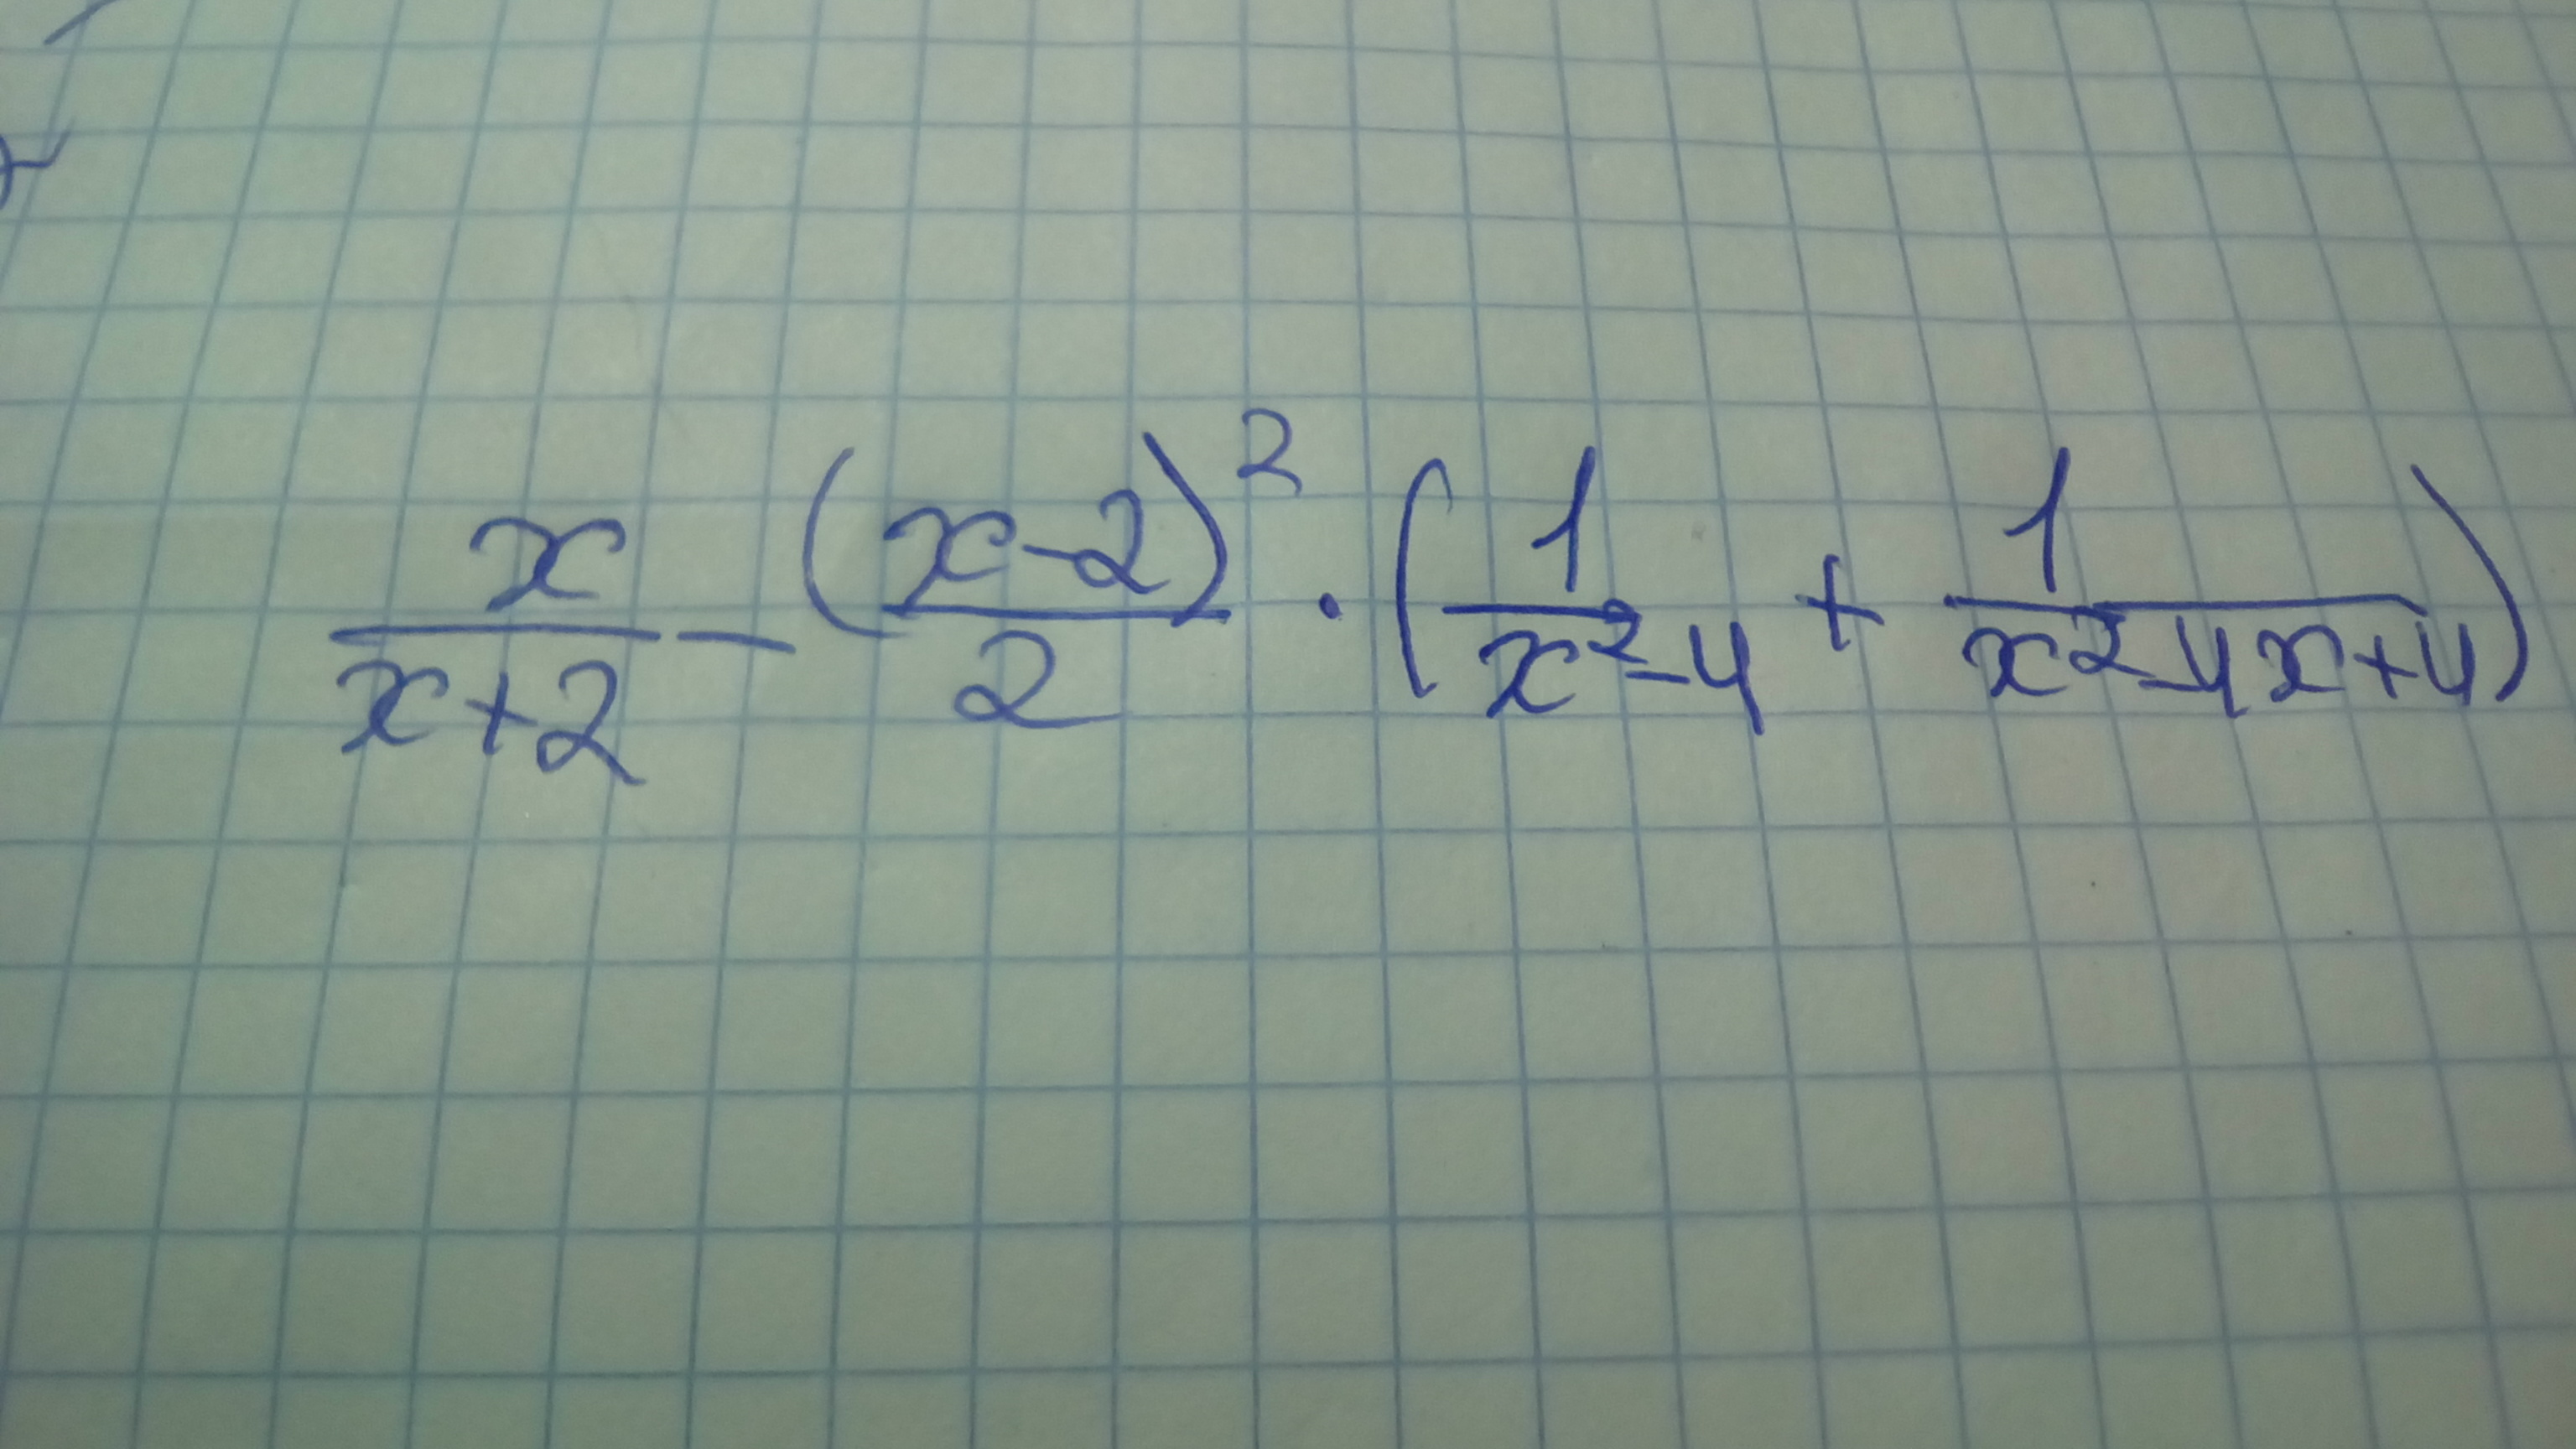 x/(x+2) - (x-2)²/2 · (1/(x²-4) + 1/(x²-4x+4))